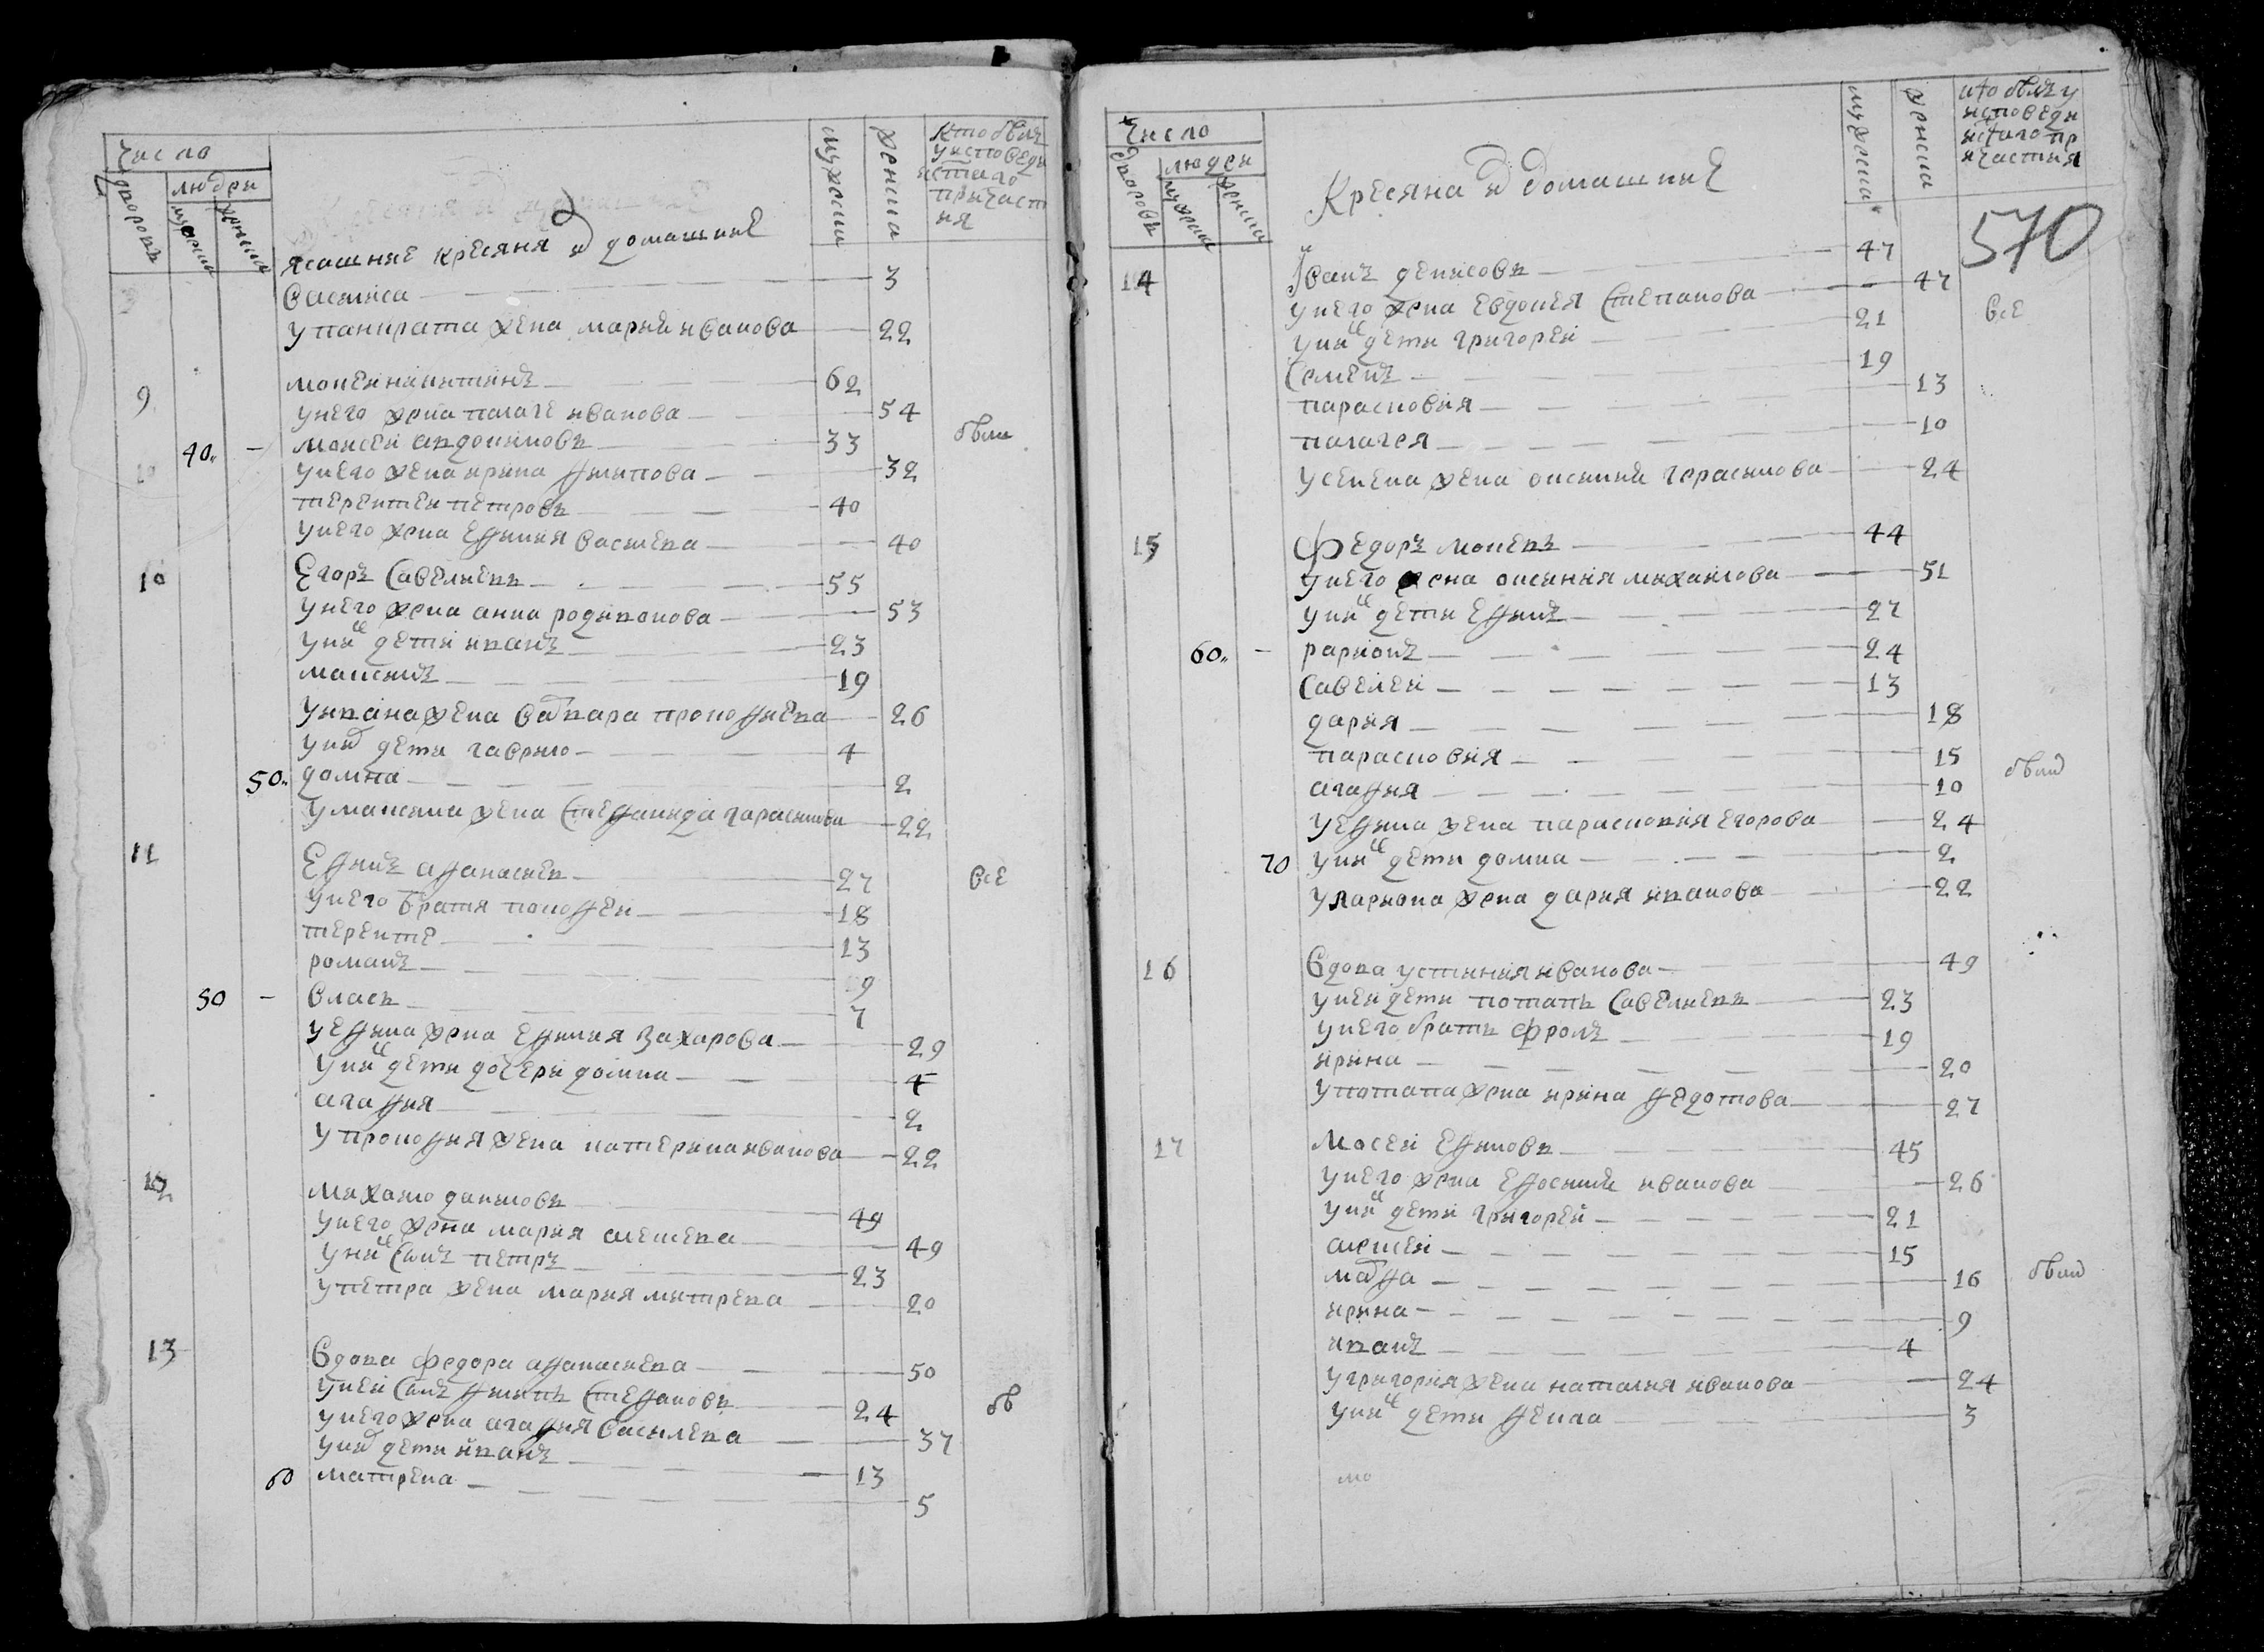 число
дворовъ
людеи
мужска
женска
Ясашные кресяня и домашние
мужска
женска
Кто былъ
у исповеди
и стаго
причаст
ия
Василиса 3
у панкрата жена мария иванова 22
9 мокеи никитинъ 62
у него жена палаге иванова 54
40 моисеи авдокимовъ 33
были
у него жена ирина филипова 32
терентеи петровъ 40
у него жена ефимия васильева 40
10 Егоръ Савельевъ 55
у него жена анна родивонова 53
у них дети иванъ 23
максимъ 19
у ивана жена варвара прокофьева 26
у них дети гаврило 4
50 домна 2
у максима жена стефанида гарасимова 22
11 Ефимъ афанасьевъ 27
все
у него братя прокофеи 18
терентe 13
романъ 9
50 власъ 7
у ефима жена ефимия захарова 29
у них дети дочери домна 4
агафия 2
у прокофия жена катерина иванова 22
12 михаило даниловъ 49
у него жена мария алексеева 49
у них сынъ петръ 23
у петра жена мария митрева 20
13 вдова федора афанасьева 50
у неи сынъ филипъ стефановъ 24
бы
у него жена агафия васильева 37
у них дети иванъ 13
60 матрена 5
число
дворовъ
людеи
мужска
женска
Кресяна и домашние
мужска
женска
кто былъ у
исповеди
и стаго пр
ичастия
570
14 Иванъ денисовъ 47
у него жена евдокея степанова 47
все
у них дети григореи 21
семенъ 19
парасковия 13
палагея 10
у семена жена оксиния герасимова 24
15 Федоръ мокевъ 44
у него жена оксиния михаилова 51
у них дети ефимъ 27
60 ларионъ 24
савелеи 13
дария 18
парасковия 15
были
агафия 10
у ефима жена парасковия егорова 24
70 у них дети домна 2
у лариона жена дария иванова 22
16 вдова устиния иванова 49
у неи дети потапъ савельевъ 23
у него братъ фролъ 19
ирина 20
у потапа жена ирина федотова 27
17 мосеи ефимовъ 45
у него жена ефосиния иванова 26
у них дети григореи 21
алексеи 15
марфа 16
были
ирина 9
иванъ 4
у григория жена наталия иванова 24
у них дети фекла 3
мо